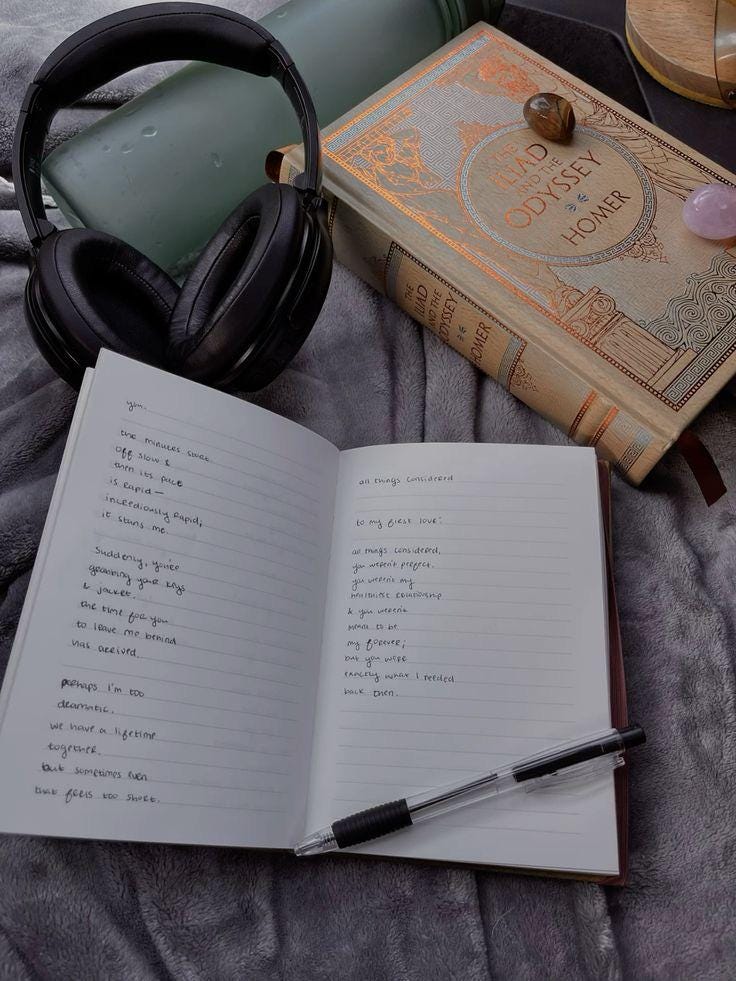 THE
ILIAD
AND THE
ODYSSEY
HOMER
THE
ILIAD
AND THE
ODYSSEY
HOMER
you.
the minutes start
off slow &
then its pace
is rapid—
incrediously rapid;
it stuns me.
Suddenly, you're
grabbing your keys
& jacket.
the time for you
to leave me behind
has arrived.
perhaps I'm too
dramatic.
we have a lifetime
together.
but sometimes even
that feels too short.
all things considered
to my first love:
all things considered,
you weren't perfect.
you weren't my
healthiest relationship
& you weren't
meant to be
my forever;
but you were
exactly what I needed
back then.